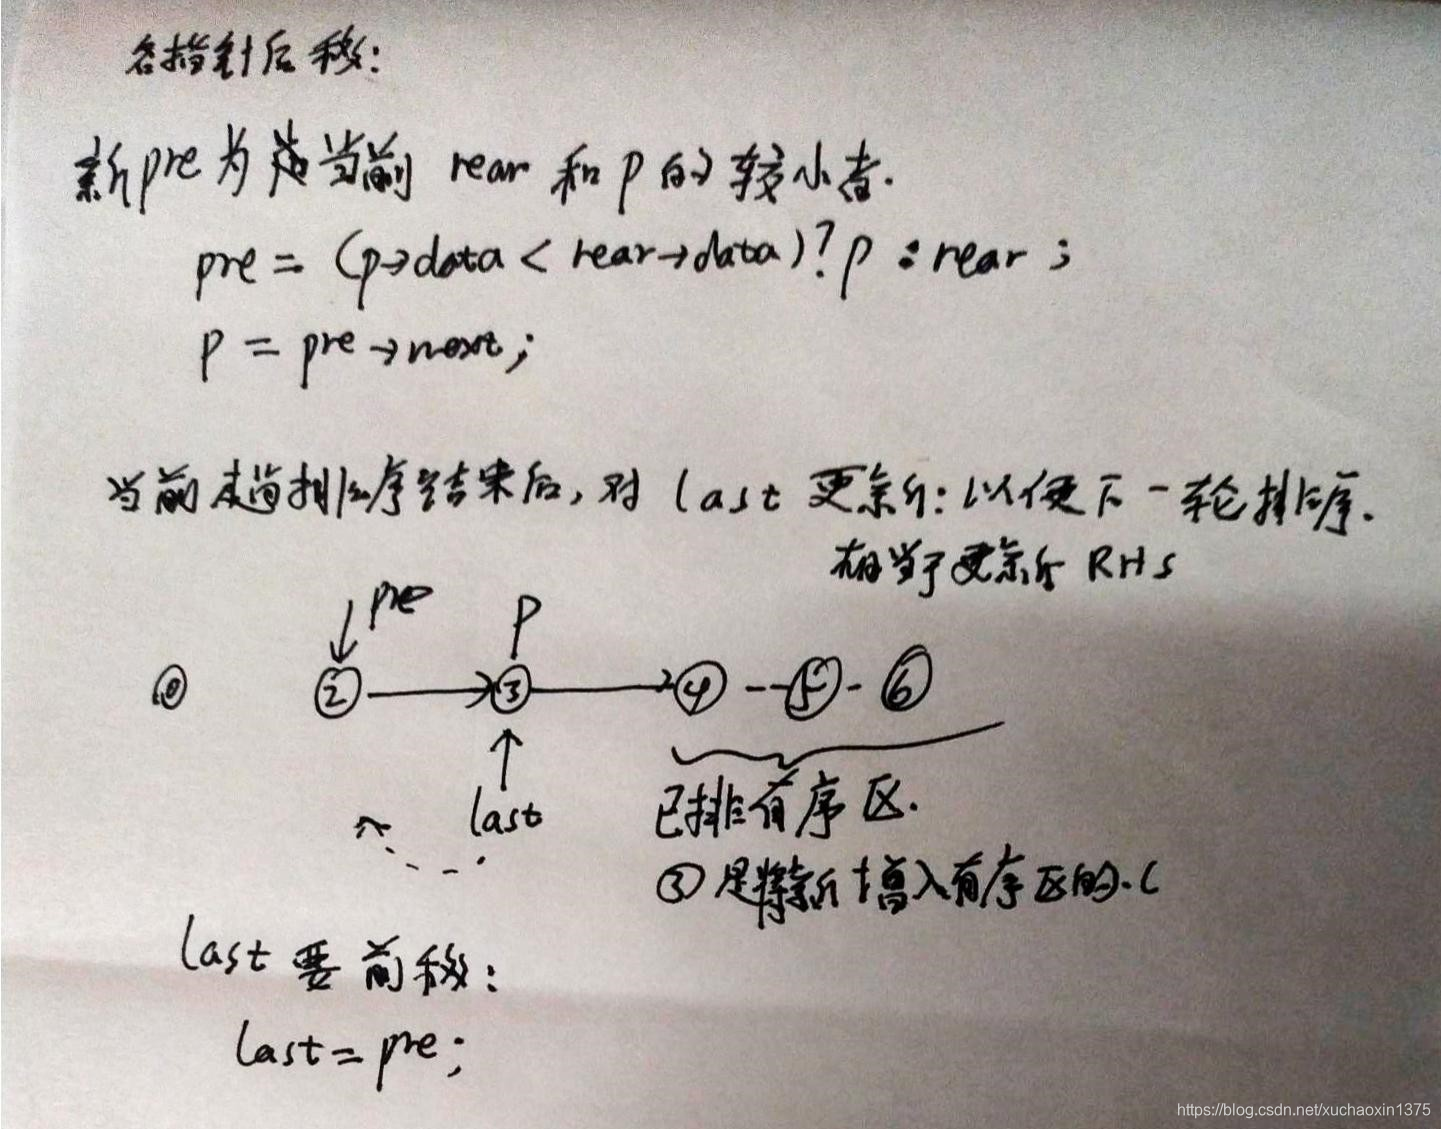 各指针后移:
新pre为当前 rear 和 p 的较小者.
pre = (p→data < rear→data)? p : rear ;
p = pre→next;
当前趟排序结束后, 对 last 更新: 以便下一轮排序.
相当于更新 RHS
pre
p
② ③ ④ ⑤ ⑥
last
已排有序区.
③是将新增入有序区的.(
last 要前移:
last = pre;
https://blog.csdn.net/xuchaoxin1375